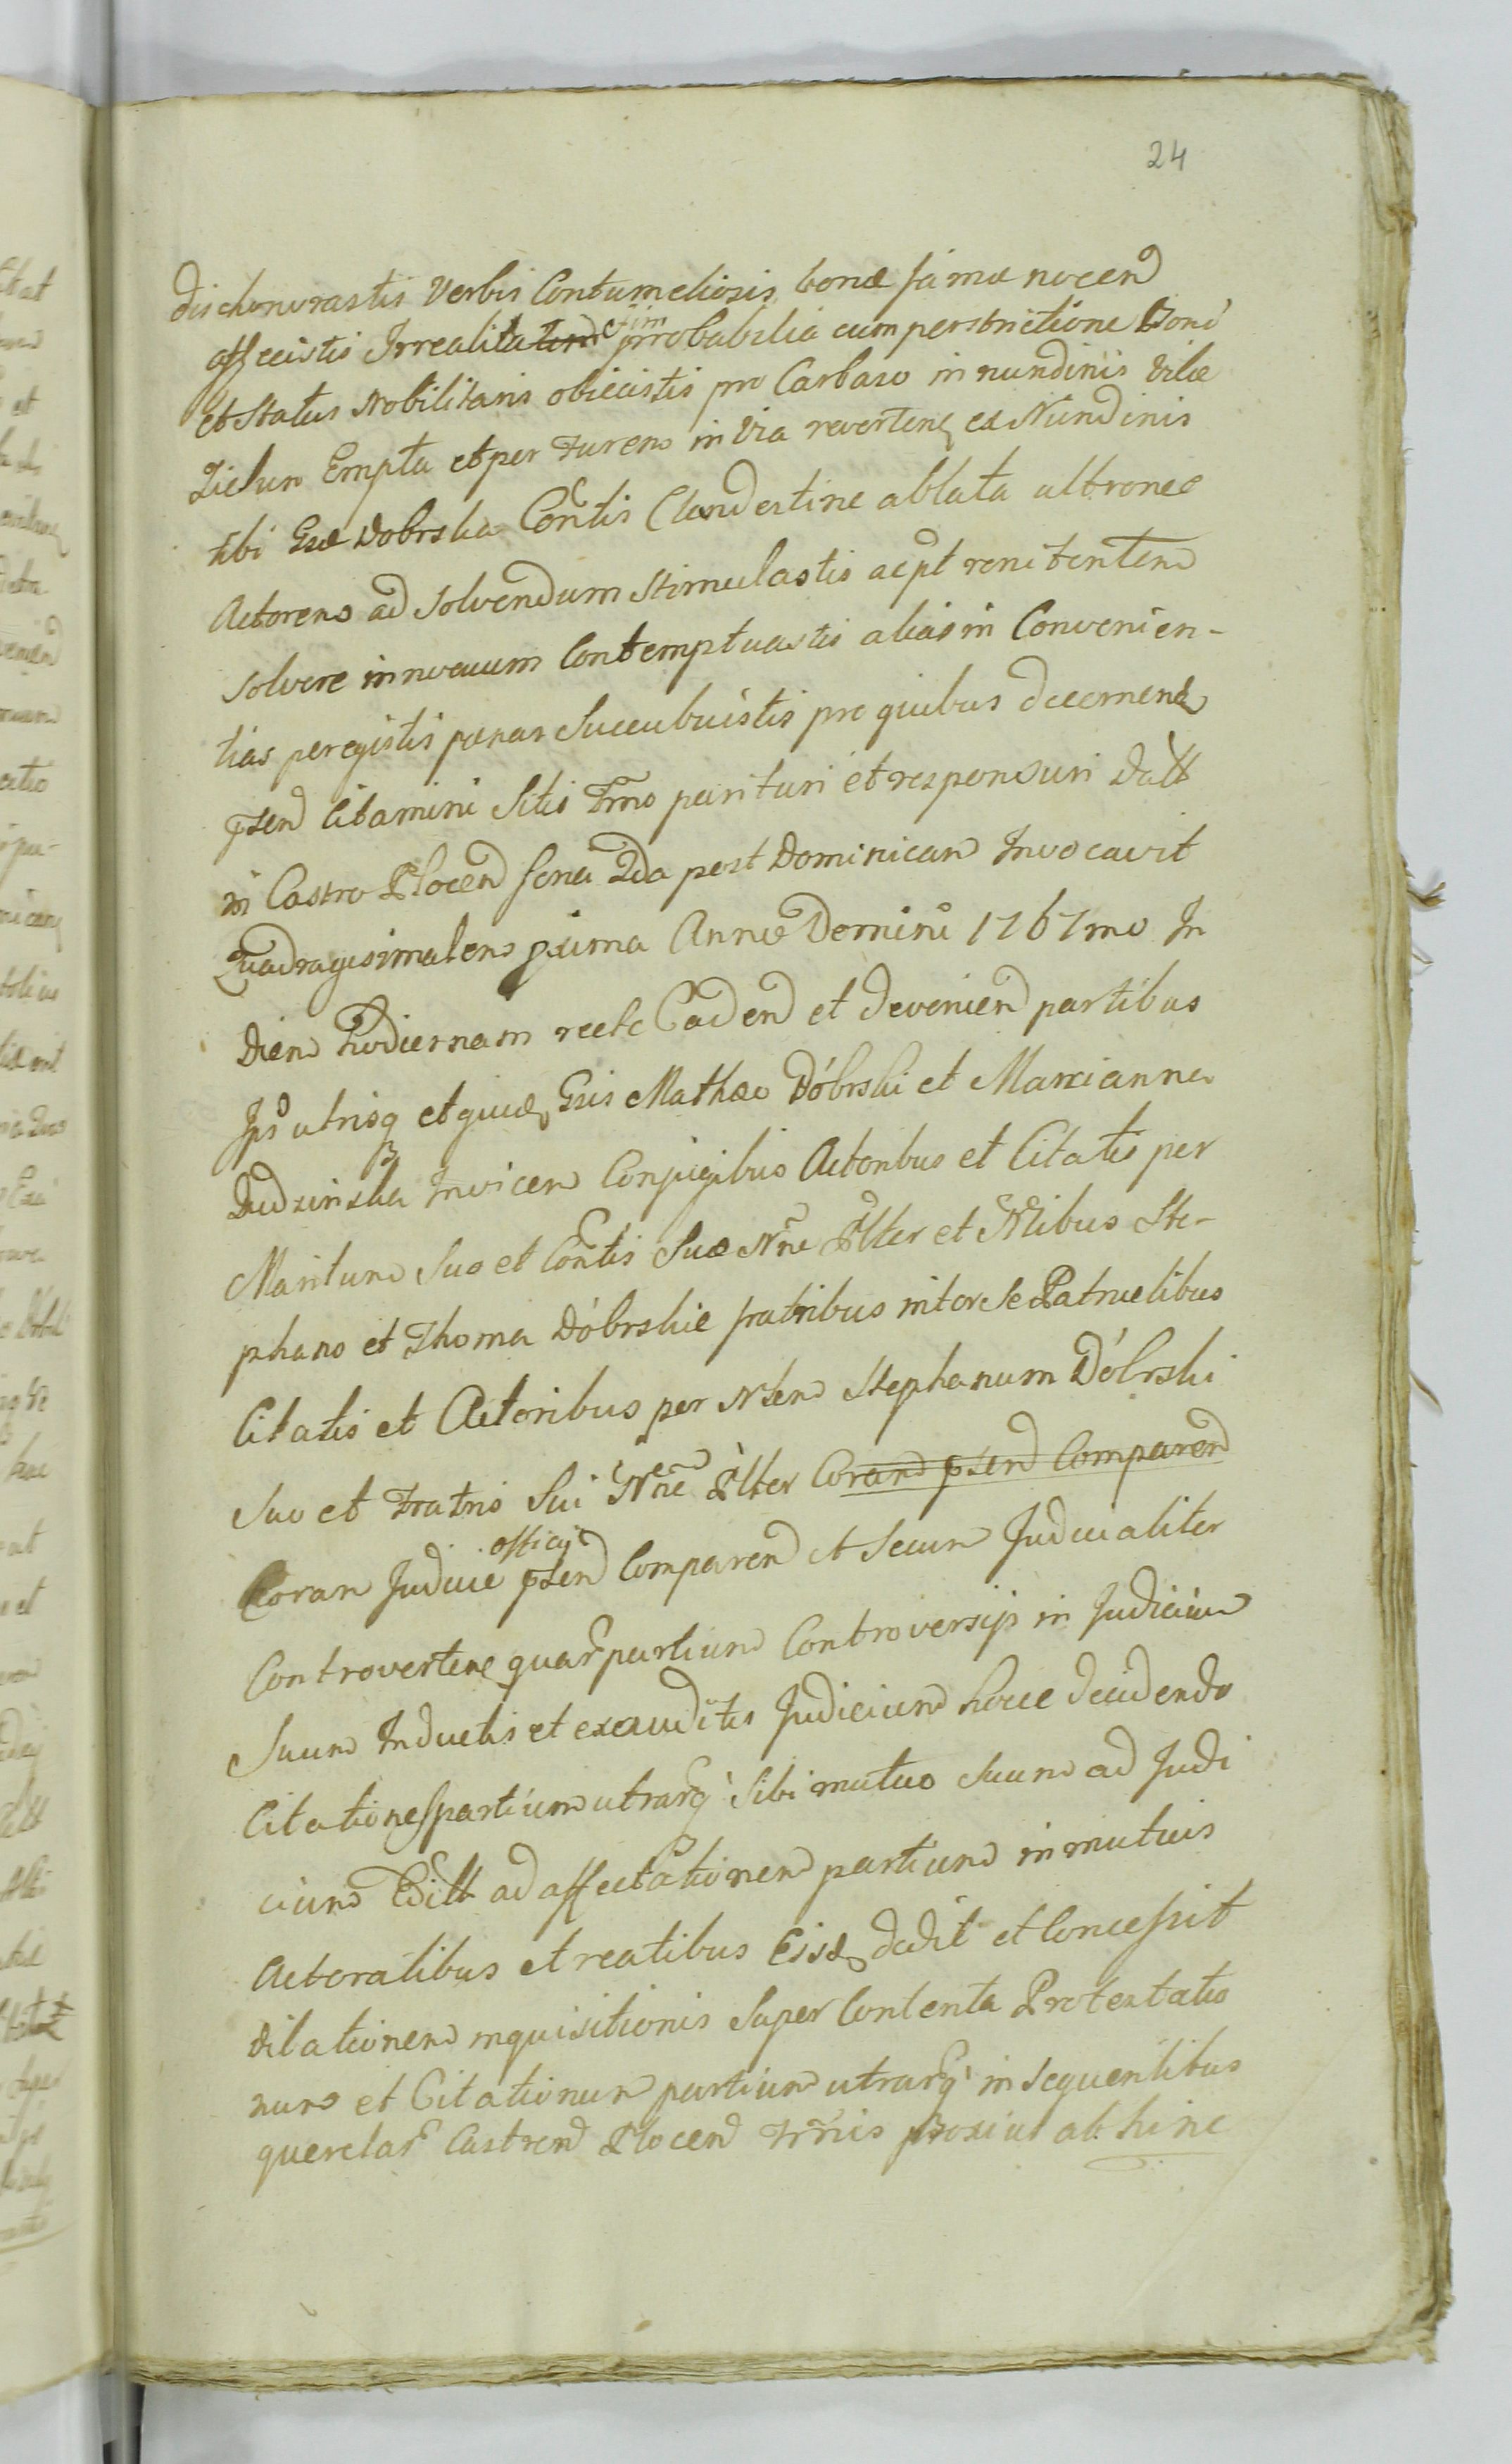 24
dischonorastis Verbis Contumeliosis bonæ famæ nocen
affecistis Irrealita et im probabilia cum perstrictione Honi
et Status Nobilitaris obiecistis pro Carbaso in nundinis Vilæ
Zielun Empta et per Furem in via reverten ex Nundinis
tibi Gsæ Dobrska Contis Clandestine ablata ultronee
Actorem ad solvendum Stimulastis acpt renitentem
solvere innocuum Contemptuastis alias in Convenien-
tias peregistis pænas Succubuistis pro quibus decernend
psen Citamini Sitis Tmo parituri et responsuri Datt
in Castro Plocen feria 2da post Dominicam Invocavit
Quadragesimalem pxima Anno Domini 1767mo In
Diem hodiernam recte Caden et devenien partibus
Ips utrisq et quid Gsis Mathæo Dóbrski et Marcianna
Dudzinska Invicem Conjugibus Actoribus et Citatis per
Maritum Suo et Contis Suæ Nne Plter et Nlibus Ste-
phano et Thoma Dóbrskie fratribus inter se Patruelibus
Citatis et Actoribus per Nlem Stephanum Dóbrski
Suo et Fratris Sui Nne Plter Coram psen Comparen
officij
Coram Judicie psen Comparen et Secum Judicialiter
Controverten quar partium Controversijs in Judicium
Suum Inductis et exauditis Judicium hocce decidendo
Citationes partium utrarq Sibi mutuo Suum ad Judi
cium Editt ad affectationem partium in mutuis
Actoratibus et reatibus Eisd dedit et Concessit
dilationem inquisitionis Super Contenta Protestatio
num et Citationum partium utrarq in sequentibus
querelar Castren Plocen Trnis proxius abhinc